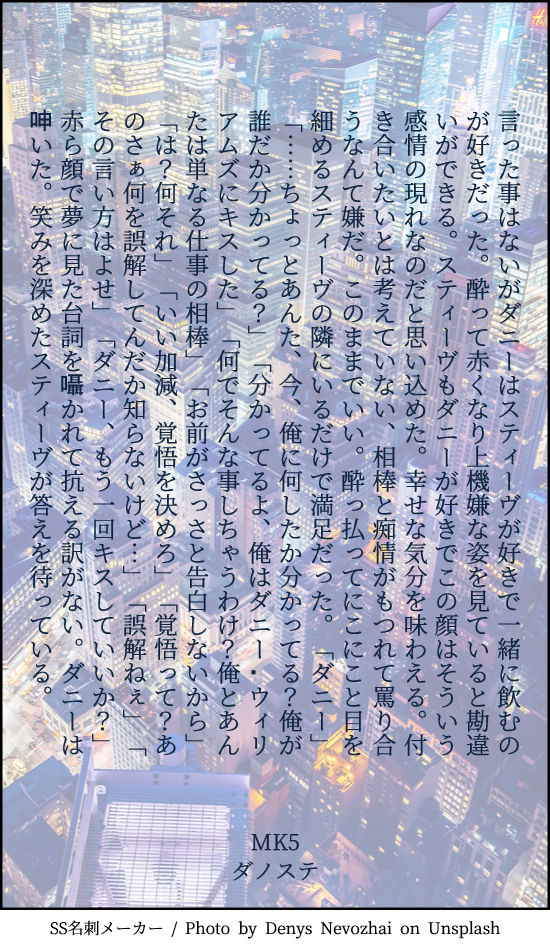 言った事はないがダニーはスティーヴが好きで一緒に飲むの
が好きだった。酔って赤くなり上機嫌な姿を見ていると勘違
いができる。スティーヴもダニーが好きでこの顔はそういう
感情の現れなのだと思い込めた。幸せな気分を味わえる。付
き合いたいとは考えていない、相棒と痴情がもつれて罵り合
うなんて嫌だ。このままでいい。酔っ払ってにこにこと目を
細めるスティーヴの隣にいるだけで満足だった。「ダニー」
「……ちょっとあんた、今、俺に何したか分かってる？俺が
誰だか分かってる？」「分かってるよ、俺はダニー・ウィリ
アムズにキスした」「何でそんな事しちゃうわけ？俺とあん
たは単なる仕事の相棒」「お前がさっさと告白しないから」
「は？何それ」「いい加減、覚悟を決めろ」「覚悟って？あ
のさぁ何を誤解してんだか知らないけど…」「誤解ねぇ」「
その言い方はよせ」「ダニー、もう一回キスしていいか？」
赤ら顔で夢に見た台詞を囁かれて抗える訳がない。ダニーは
呻いた。笑みを深めたスティーヴが答えを待っている。
MK5
ダノステ
SS名刺メーカー / Photo by Denys Nevozhai on Unsplash